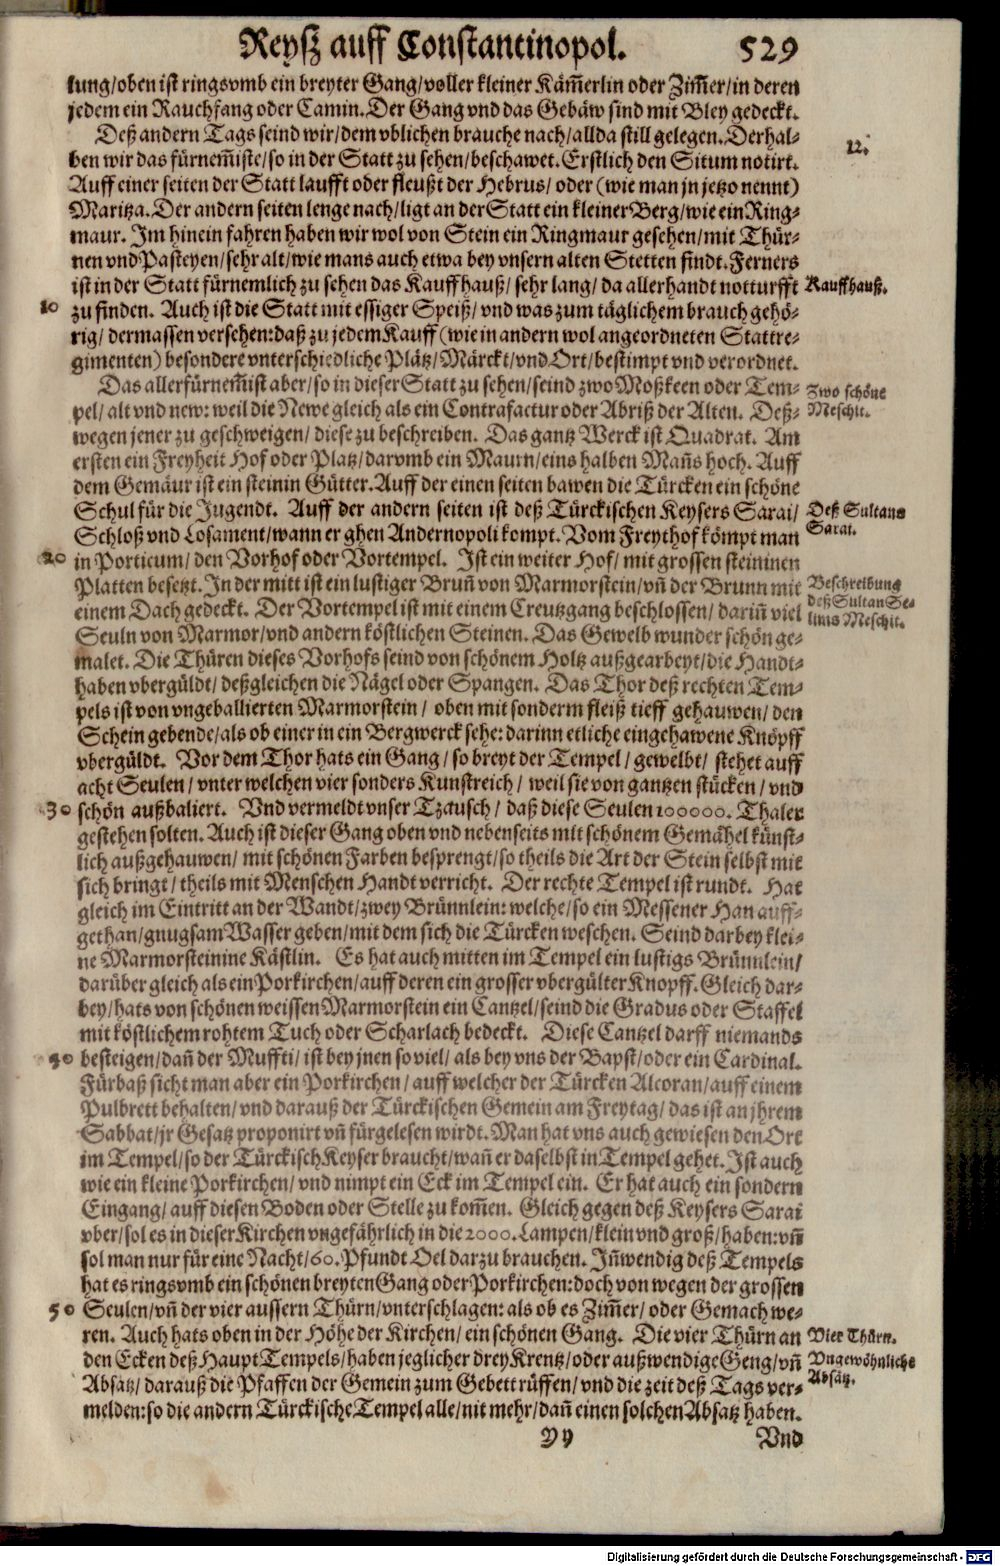 Reysz auff Constantinopol. 529
lung/oben ist ringsvmb ein breyter Gang/voller kleiner Käm̃erlin oder Zim̃er/in deren
jedem ein Rauchfang oder Camin. Der Gang vnd das Gebäw sind mit Bley gedeckt.
Deß andern Tags seind wir/dem vblichen brauche nach/allda still gelegen. Derhal-
12.
ben wir das fürnem̃iste/so in der Statt zu sehen/beschawet. Erstlich den Situm notirt.
Auff einer seiten der Statt laufft oder fleußt der Hebrus/ oder (wie man jn jetzo nennt)
Maritza. Der andern seiten lenge nach/ligt an der Statt ein kleiner Berg/wie ein Ring-
maur. Im hinein fahren haben wir wol von Stein ein Ringmaur gesehen/mit Thür-
nen vnd Pasteyen/sehr alt/wie mans auch etwa bey vnsern alten Stetten findt. Ferners
ist in der Statt fürnemlich zu sehen das Kauffhauß/ sehr lang/ da allerhandt notturfft
Kauffhauß.
10 zu finden. Auch ist die Statt mit essiger Speiß/ vnd was zum täglichem brauch gehö-
rig/ dermassen versehen: daß zu jedem Kauff (wie in andern wol angeordneten Stattre-
gimenten) besondere vnterschiedliche Plätz/ Märckt/ vnd Ort/bestimpt vnd verordnet.
Das allerfürnem̃ist aber/so in dieser Statt zu sehen/seind zwo Moßkeen oder Tem-
Zwo schöne
pel/ alt vnd new: weil die Newe gleich als ein Contrafactur oder Abriß der Alten. Deß-
Meschit.
wegen jener zu geschweigen/ diese zu beschreiben. Das gantz Werck ist Quadrat. Am
ersten ein Freyheit Hof oder Platz/darvmb ein Maurn/eins halben Mañs hoch. Auff
dem Gemäur ist ein steinin Gütter. Auff der einen seiten bawen die Türcken ein schöne
Schul für die Jugendt. Auff der andern seiten ist deß Türckischen Keysers Sarai/
Deß Sultans
Sarai.
Schloß vnd Losament/wann er ghen Andernopoli kompt. Vom Freythof kömpt man
20 in Porticum/ den Vorhof oder Vortempel. Ist ein weiter Hof/ mit grossen steininen
Platten besetzt. In der mitt ist ein lustiger Bruñ von Marmorstein/vñ der Brunn mit
Beschreibung
deß Sultan Se-
limis Meschit.
einem Dach gedeckt. Der Vortempel ist mit einem Creutzgang beschlossen/ dariñ viel
Seuln von Marmor/vnd andern köstlichen Steinen. Das Gewelb wunder schön ge-
malet. Die Thüren dieses Vorhofs seind von schönem Holtz außgearbeyt/die Handt-
haben vbergüldt/ deßgleichen die Nägel oder Spangen. Das Thor deß rechten Tem-
pels ist von vngeballierten Marmorstein/ oben mit sonderm fleiß tieff gehauwen/ den
Schein gebende/als ob einer in ein Bergwerck sehe: darinn etliche eingehawene Knöpff
vbergüldt. Vor dem Thor hats ein Gang/ so breyt der Tempel/ gewelbt/ stehet auff
acht Seulen/ vnter welchen vier sonders Kunstreich/ weil sie von gantzen stücken/ vnd
30 schön außbaliert. Vnd vermeldt vnser Tzausch/ daß diese Seulen 100000. Thaler
gestehen solten. Auch ist dieser Gang oben vnd nebenseits mit schönem Gemähel künst-
lich außgehauwen/ mit schönen Farben besprengt/so theils die Art der Stein selbst mit
sich bringt/ theils mit Menschen Handt verricht. Der rechte Tempel ist rundt. Hat
gleich im Eintritt an der Wandt/zwey Brünnlein: welche/so ein Messener Han auff-
gethan/gnugsam Wasser geben/mit dem sich die Türcken weschen. Seind darbey klei-
ne Marmorsteinine Kästlin. Es hat auch mitten im Tempel ein lustigs Brünnlein/
darüber gleich als ein Porkirchen/auff deren ein grosser vbergülter Knopff. Gleich dar-
bey/hats von schönen weissen Marmorstein ein Cantzel/seind die Gradus oder Staffel
mit köstlichem rohtem Tuch oder Scharlach bedeckt. Diese Cantzel darff niemands
40 besteigen/dañ der Muffti/ ist bey jnen so viel/ als bey vns der Bapst/oder ein Cardinal.
Fürbaß sicht man aber ein Porkirchen/ auff welcher der Türcken Alcoran/auff einem
Pulbrett behalten/ vnd darauß der Türckischen Gemein am Freytag/ das ist an jhrem
Sabbat/jr Gesatz proponirt vñ fürgelesen wirdt. Man hat vns auch gewiesen den Ort
im Tempel/so der Türckisch Keyser braucht/wañ er daselbst in Tempel gehet. Ist auch
wie ein kleine Porkirchen/ vnd nimpt ein Eck im Tempel ein. Er hat auch ein sondern
Eingang/ auff diesen Boden oder Stelle zu kom̃en. Gleich gegen deß Keysers Sarai
vber/sol es in dieser Kirchen vngefährlich in die 2000. Lampen/klein vnd groß/haben: vñ
sol man nur für eine Nacht/60. Pfundt Oel darzu brauchen. Iñwendig deß Tempels
hat es ringsvmb ein schönen breyten Gang oder Porkirchen: doch von wegen der grossen
50 Seulen/vñ der vier aussern Thürn/vnterschlagen: als ob es Zim̃er/ oder Gemach we-
ren. Auch hats oben in der Höhe der Kirchen/ ein schönen Gang. Die vier Thürn an
Vier Thürn.
den Ecken deß Haupt Tempels/haben jeglicher drey Krentz/oder außwendige Geng/vñ
Vngewöhnliche
Absätz.
Absätz/ darauß die Pfaffen der Gemein zum Gebett rüffen/ vnd die zeit deß Tags ver-
melden: so die andern Türckische Tempel alle/nit mehr/dañ einen solchen Absatz haben.
Yy Vnd
Digitalisierung gefördert durch die Deutsche Forschungsgemeinschaft - DFG